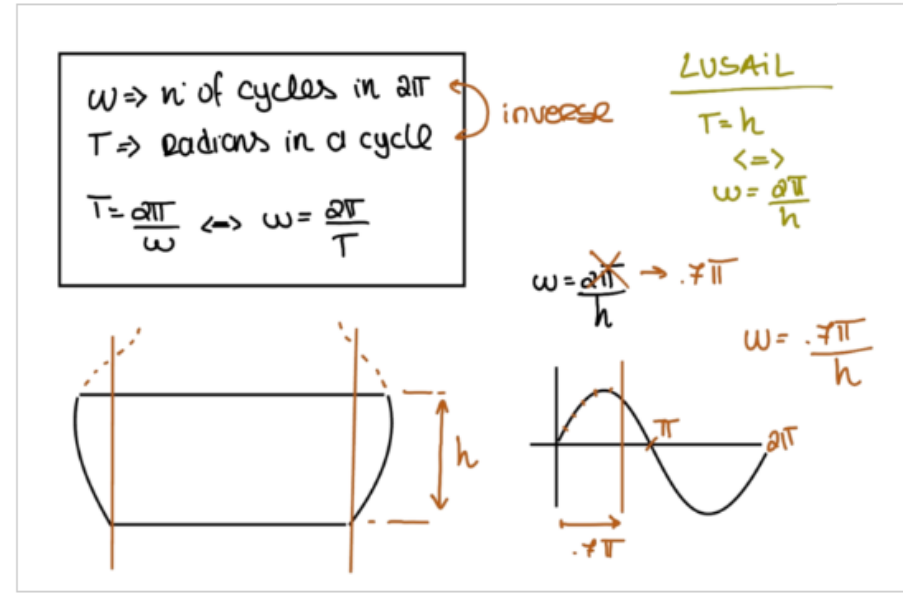 ω => n° of cycles in 2π
T => Radians in a cycle
inverse
T = 2π/ω <=> ω = 2π/T
LUSAiL
T = h
<=>
ω = 2π/h
ω = 2π/h → .7π
ω = .7π/h
h
π
2π
.7π